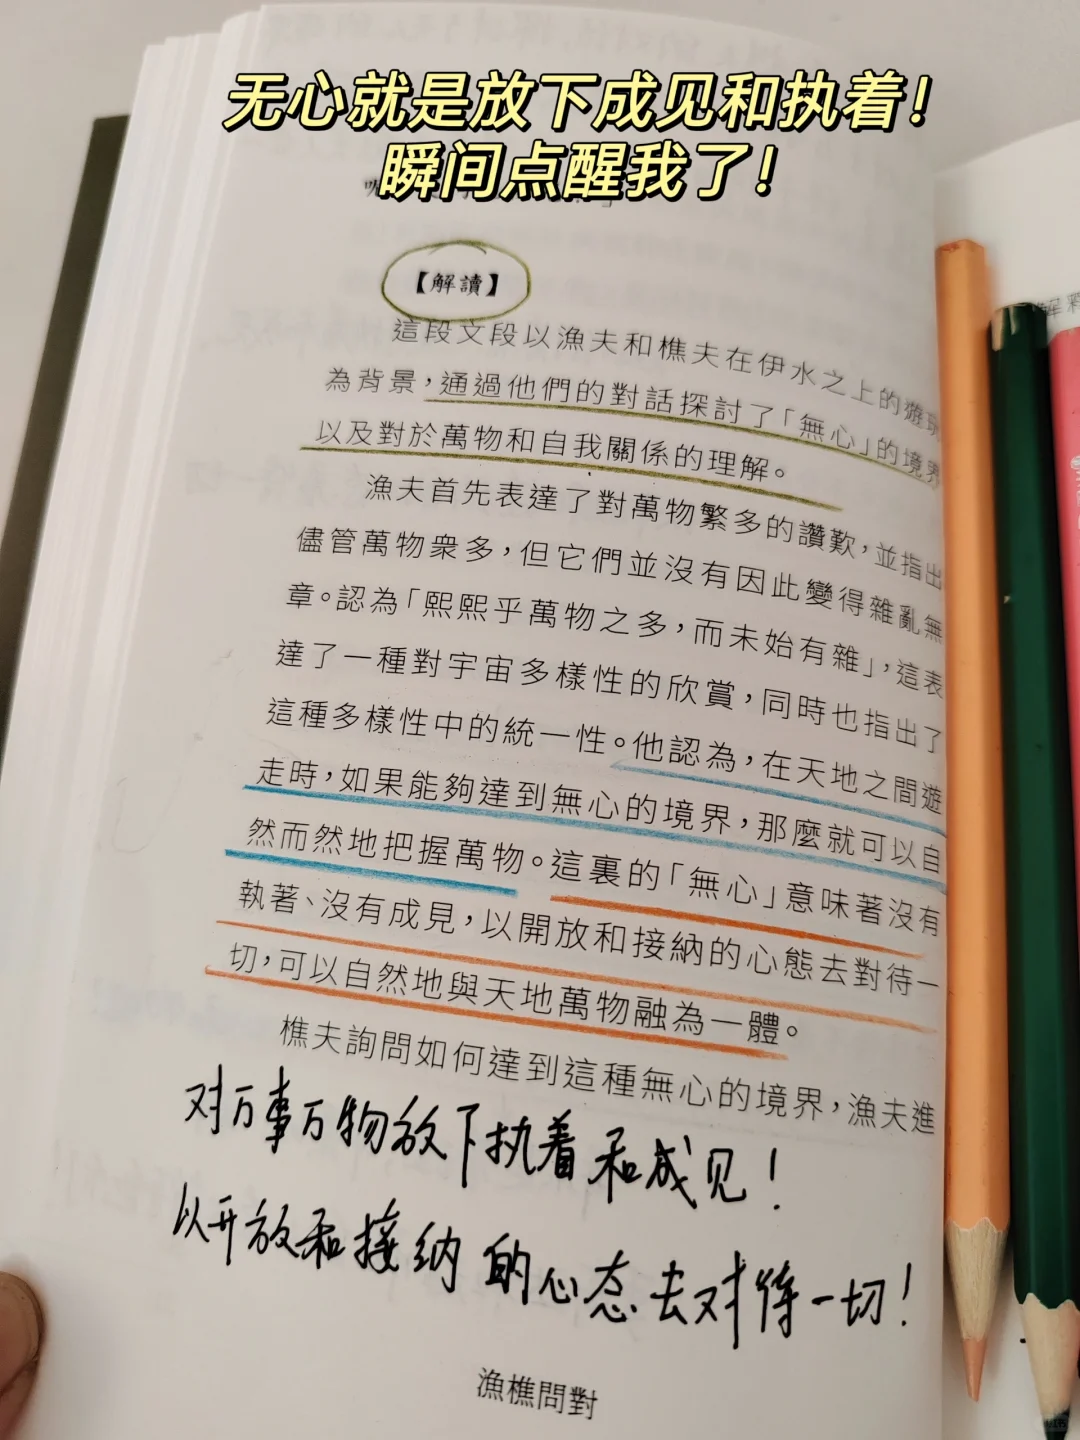 无心就是放下成见和执着！
瞬间点醒我了！
【解讀】
這段文段以漁夫和樵夫在伊水之上的遊玩
為背景，通過他們的對話探討了「無心」的境界
以及對於萬物和自我關係的理解。
漁夫首先表達了對萬物繁多的讚歎，並指出
儘管萬物衆多，但它們並沒有因此變得雜亂無
章。認為「熙熙乎萬物之多，而未始有雜」，這表
達了一種對宇宙多樣性的欣賞，同時也指出了
這種多樣性中的統一性。他認為，在天地之間遊
走時，如果能夠達到無心的境界，那麼就可以自
然而然地把握萬物。這裏的「無心」意味著沒有
執著、沒有成見，以開放和接納的心態去對待一
切，可以自然地與天地萬物融為一體。
樵夫詢問如何達到這種無心的境界，漁夫進
对万事万物放下执着和成见！
以开放和接纳的心态去对待一切！
漁樵問對
解釋